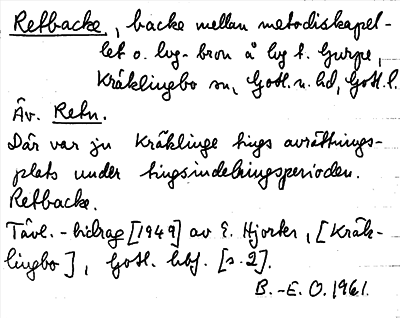 Retbacke, backe mellan metodistkapel-
let o. lvg-bron å lvg t. Gurpe,
Kräklingbo sn, Gotl. n. hd, Gotl. l.
Äv. Retn.
Där var ju Kräklinge tings avrättnings-
plats under tingsindelningsperioden.
Retbacke.
Tävl.-bidrag [1949] av E. Hjorter, [Kräk-
lingbo], Gotl. hbf. [s. 2].
B.-E. O. 1961.